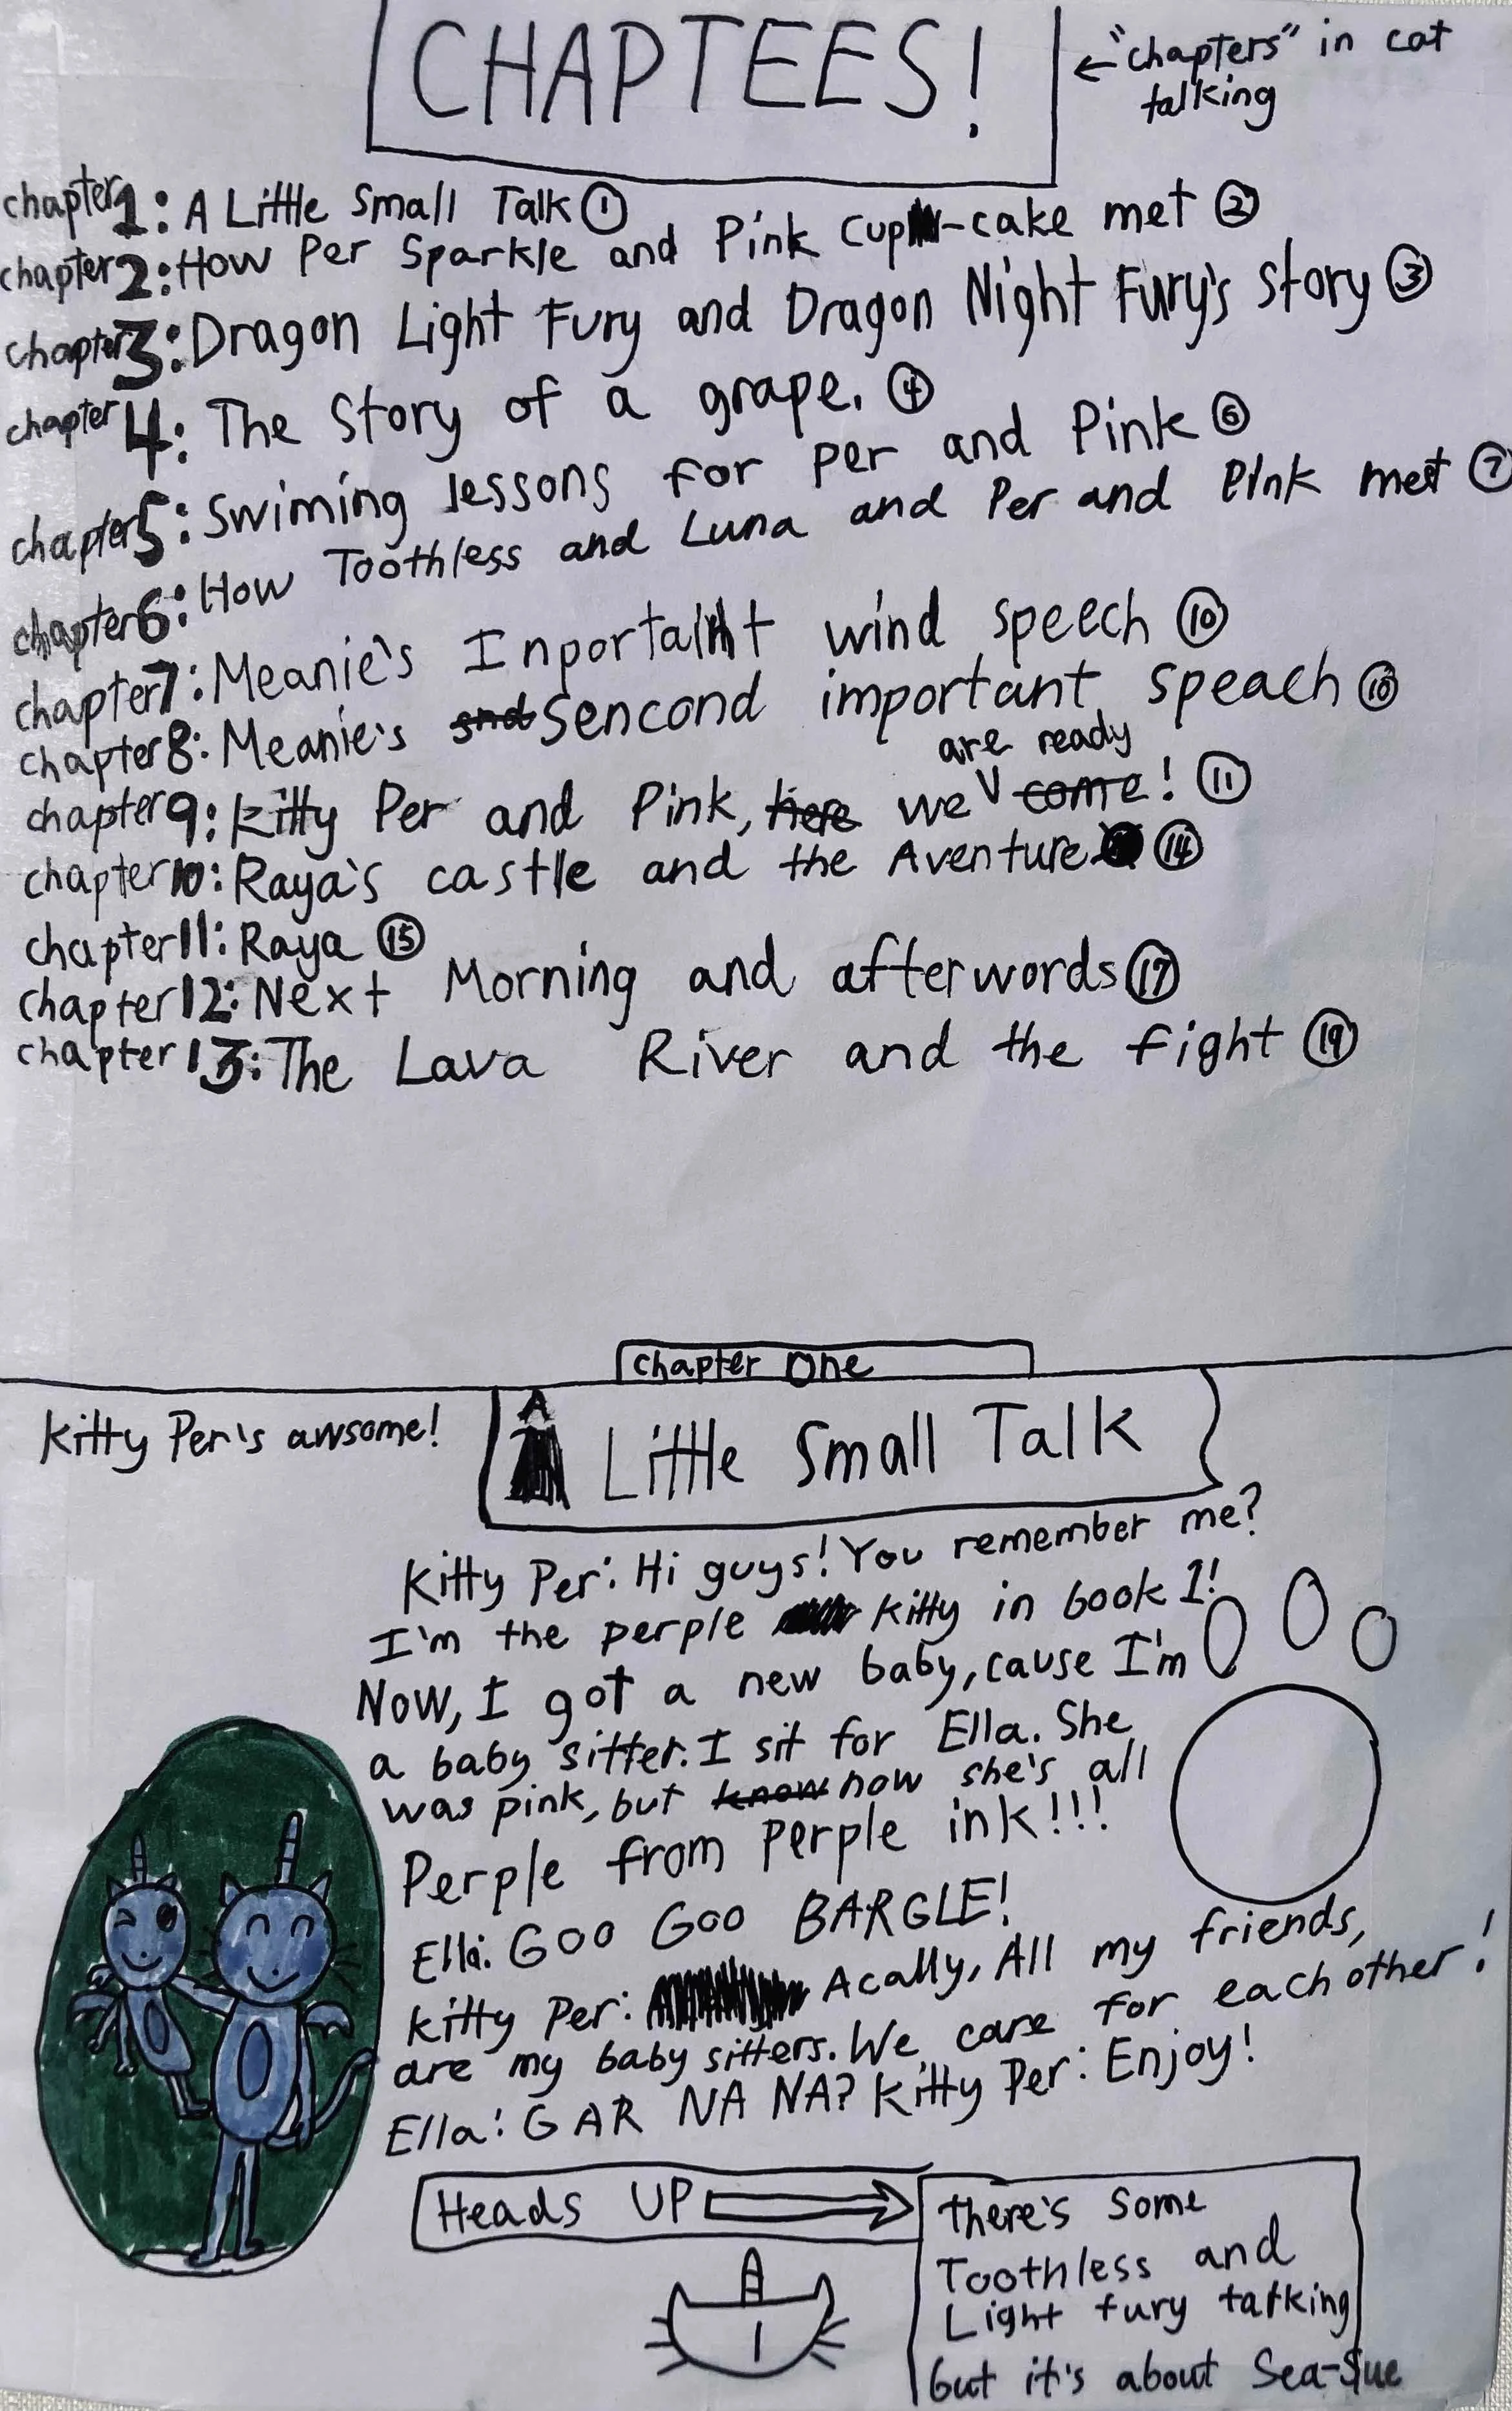 CHAPTEES!
← "chapters" in cat
talking
chapter 1: A Little Small Talk ①
chapter 2: How Per Sparkle and Pink Cup-cake met ②
chapter 3: Dragon Light Fury and Dragon Night Fury's story ③
chapter 4: The Story of a grape. ④
chapter 5: Swiming lessons for per and Pink ⑥
chapter 6: How Toothless and Luna and Per and Pink met ⑦
chapter 7: Meanie's Inportant wind speech ⑩
chapter 8: Meanie's Sencond important speach ⑩
chapter 9: Kitty Per and Pink, we are ready! ⑪
chapter 10: Raya's castle and the Aventure ⑭
chapter 11: Raya ⑮
chapter 12: Next Morning and afterwords ⑰
chapter 13: The Lava River and the fight ⑲
chapter One
Kitty Per's awsome!
A Little Small Talk
Kitty Per: Hi guys! You remember me?
I'm the perple kitty in book 1!
Now, I got a new baby, cause I'm
a baby sitter. I sit for Ella. She
was pink, but now she's all
Perple from perple ink!!!
Ella: GOO GOO BARGLE!
Kitty Per: Acally, All my friends,
are my baby sitters. We care for each other!
Ella: GAR NA NA? Kitty Per: Enjoy!
Heads UP
There's some
Toothless and
Light fury talking
but it's about Sea-Sue
1